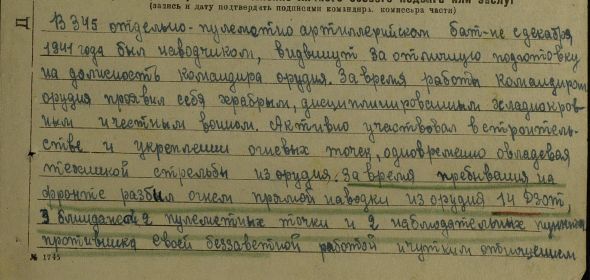 (запись и дату подтвердить подписями командира, комиссара части)
В 345 отдельно-пулеметно артиллерийском бат-не с декабря
1941 года был наводчиком, выдвинут за отличную подготовку
на должность командира орудия. За время работы командиром
орудия проявил себя храбрым, дисциплинированным хладнокров-
ным и честным воином. Активно участвовал в строитель-
стве и укреплении огневых точек, одновременно овладевая
техникой стрельбы из орудия. За время пребывания на
фронте разбил огнем прямой наводки из орудия 14 Дзот,
3 блиндажа 2 пулеметных точки и 2 наблюдательных пункта
противника своей беззаветной работой и чутким отношением
№ 1745